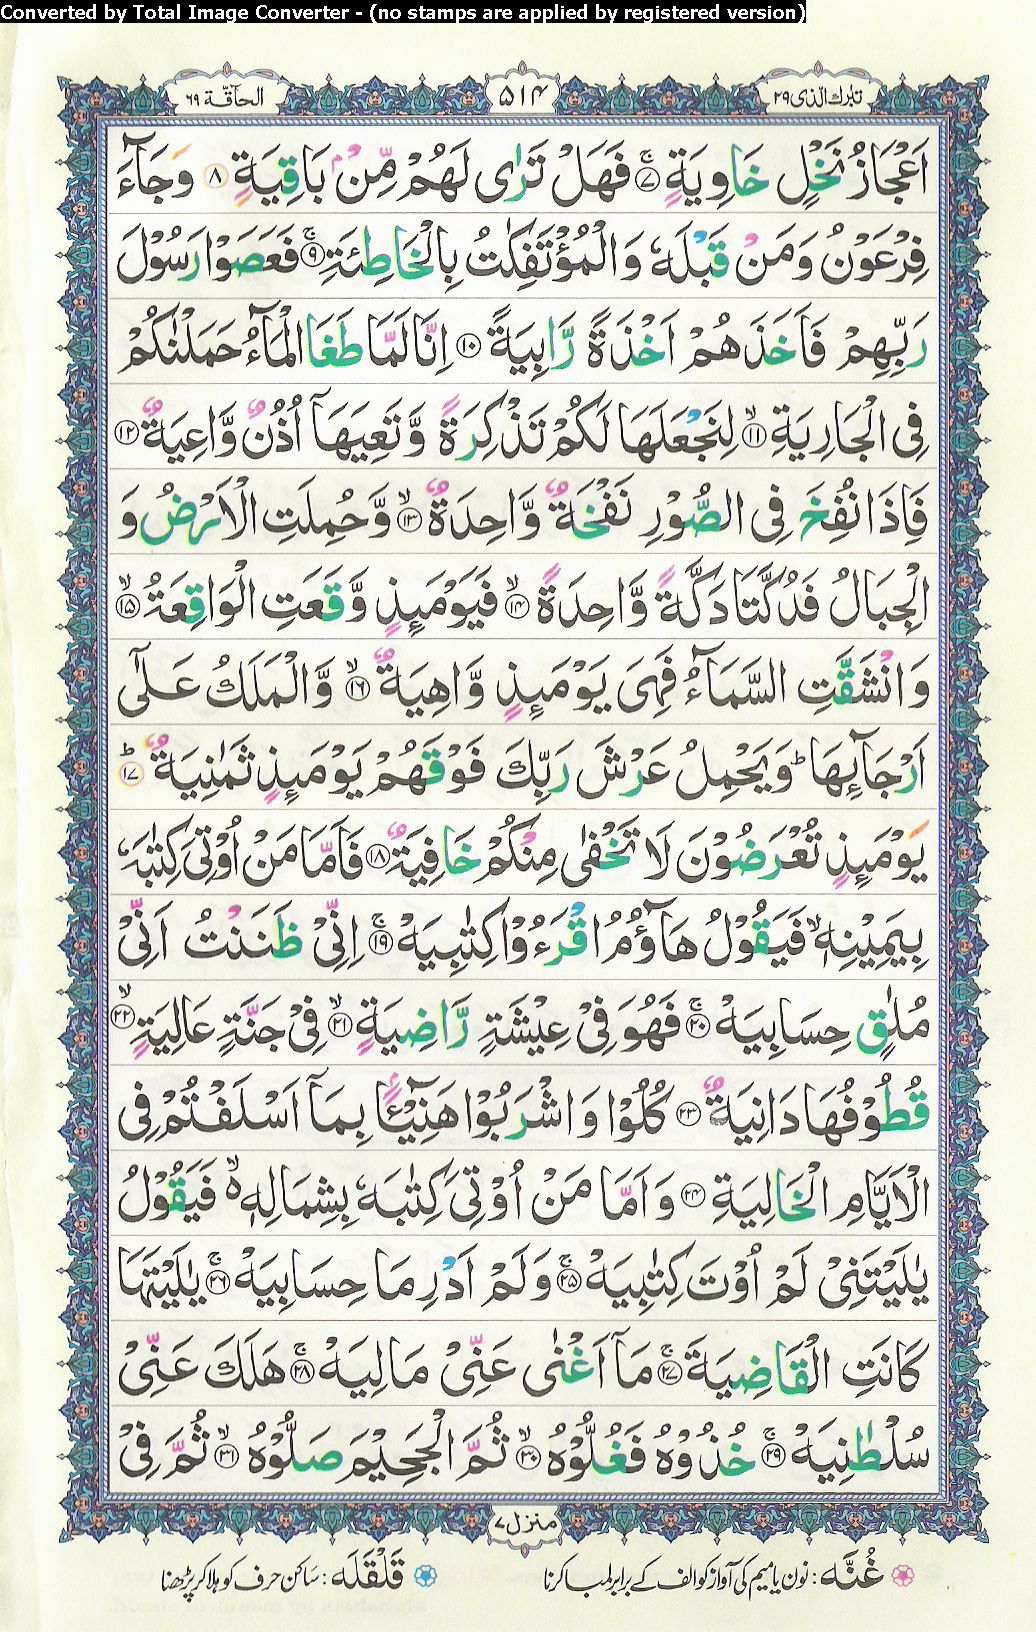 Converted by Total Image Converter - (no stamps are applied by registered version)
تبٰرك الذی ٢٩ ۵۱۴ الحاقّة ٦٩
اَعْجَازُ نَخْلٍ خَاوِيَةٍ ۚ‏﴿۷﴾ فَهَلْ تَرٰى لَهُمْ مِّنْۢ بَاقِيَةٍ ﴿۸﴾ وَجَآءَ
فِرْعَوْنُ وَمَنْ قَبْلَهٗ وَالْمُؤْتَفِكٰتُ بِالْخَاطِئَةِ ۚ﴿۹﴾ فَعَصَوْا رَسُوْلَ
رَبِّهِمْ فَاَخَذَهُمْ اَخْذَةً رَّابِيَةً ﴿۱۰﴾ اِنَّا لَمَّا طَغَا الْمَآءُ حَمَلْنٰكُمْ
فِى الْجَارِيَةِ ۙ﴿۱۱﴾ لِنَجْعَلَهَا لَكُمْ تَذْكِرَةً وَّتَعِيَهَآ اُذُنٌ وَّاعِيَةٌ ﴿۱۲﴾
فَاِذَا نُفِخَ فِى الصُّوْرِ نَفْخَةٌ وَّاحِدَةٌ ۙ﴿۱۳﴾ وَّحُمِلَتِ الْاَرْضُ وَ
الْجِبَالُ فَدُكَّتَا دَكَّةً وَّاحِدَةً ۙ﴿۱۴﴾ فَيَوْمَئِذٍ وَّقَعَتِ الْوَاقِعَةُ ۙ﴿۱۵﴾
وَانْشَقَّتِ السَّمَآءُ فَهِىَ يَوْمَئِذٍ وَّاهِيَةٌ ۙ﴿۱۶﴾ وَّالْمَلَكُ عَلٰٓى
اَرْجَآئِهَا ؕ وَيَحْمِلُ عَرْشَ رَبِّكَ فَوْقَهُمْ يَوْمَئِذٍ ثَمٰنِيَةٌ ؕ﴿۱۷﴾
يَوْمَئِذٍ تُعْرَضُوْنَ لَا تَخْفٰى مِنْكُمْ خَافِيَةٌ ﴿۱۸﴾ فَاَمَّا مَنْ اُوْتِىَ كِتٰبَهٗ
بِيَمِيْنِهٖ ۙ فَيَقُوْلُ هَآؤُمُ اقْرَءُوْا كِتٰبِيَهْ ۚ﴿۱۹﴾ اِنِّىْ ظَنَنْتُ اَنِّىْ
مُلٰقٍ حِسَابِيَهْ ۚ﴿۲۰﴾ فَهُوَ فِىْ عِيْشَةٍ رَّاضِيَةٍ ۙ﴿۲۱﴾ فِىْ جَنَّةٍ عَالِيَةٍ ۙ﴿۲۲﴾
قُطُوْفُهَا دَانِيَةٌ ﴿۲۳﴾ كُلُوْا وَاشْرَبُوْا هَنِيْٓــًٔا بِمَآ اَسْلَفْتُمْ فِى
الْاَيَّامِ الْخَالِيَةِ ﴿۲۴﴾ وَاَمَّا مَنْ اُوْتِىَ كِتٰبَهٗ بِشِمَالِهٖ ۙ۬ فَيَقُوْلُ
يٰلَيْتَنِىْ لَمْ اُوْتَ كِتٰبِيَهْ ۚ﴿۲۵﴾ وَلَمْ اَدْرِ مَا حِسَابِيَهْ ۚ﴿۲۶﴾ يٰلَيْتَهَا
كَانَتِ الْقَاضِيَةَ ۚ﴿۲۷﴾ مَآ اَغْنٰى عَنِّىْ مَالِيَهْ ۚ﴿۲۸﴾ هَلَكَ عَنِّىْ
سُلْطٰنِيَهْ ۚ﴿۲۹﴾ خُذُوْهُ فَغُلُّوْهُ ۙ﴿۳۰﴾ ثُمَّ الْجَحِيْمَ صَلُّوْهُ ۙ﴿۳۱﴾ ثُمَّ فِىْ
منزل ٧
غُنَّه : نون یا میم کی آواز کو الف کے برابر لمبا کرنا قَلْقَلَه : ساکن حرف کو ہلا کر پڑھنا